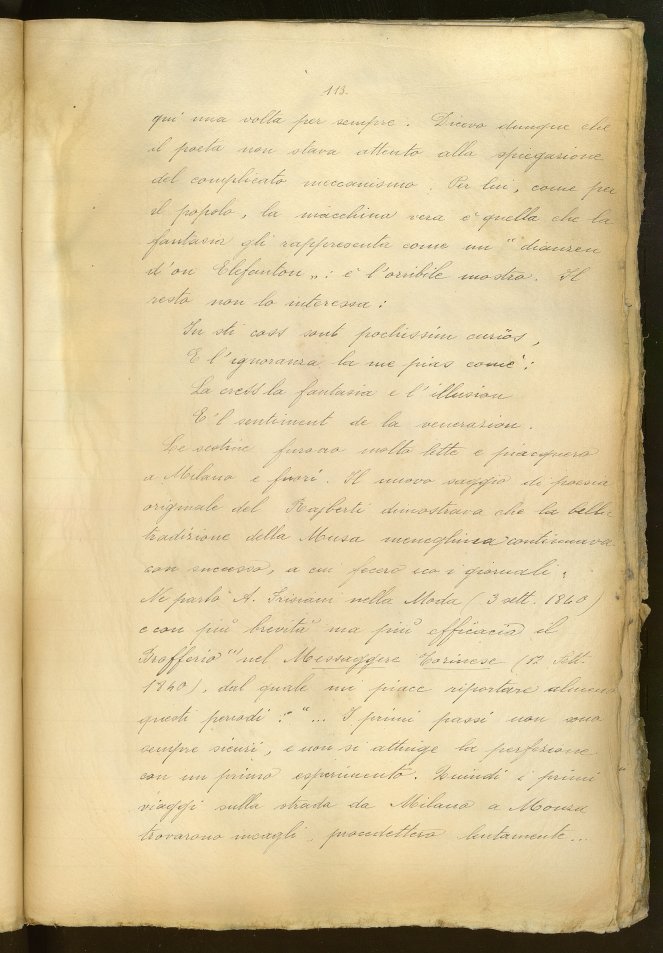 113.
qui una volta per sempre. Dicevo dunque che
il poeta non stava attento alla spiegazione
del complicato meccanismo. Per lui, come per
il popolo, la macchina vera è quella che la
fantasia gli rappresenta come un "
d'on Elefanton„: è l'orribile mostro. Il
resto non lo interessa:
In sti coss sont pochissim curiôs,
E l'ignoranza la me pias comè:
La cress la fantasia e l'illusion
E'l sentiment de la venerazion.
Le sestine furono molto lette e piacquero
a Milano e fuori. Il nuovo saggio di poesia
originale del Rajberti dimostrava che la bella
tradizione della Musa meneghina continuava
con successo, a cui fecero eco i giornali.
Ne parlò A. nella Moda (3 sett. 1840)
e con più brevità ma più efficacia il
Brofferio nel Messaggere Torinese (12 Sett.
1840), dal quale mi piace riportare almeno
questi periodi: "... I primi passi non sono
sempre sicuri, e non si attinge la perfezione
con un primo esperimento. Quindi i primi
viaggi sulla strada da Milano a Monza
trovarono incagli, procedettero lentamente...